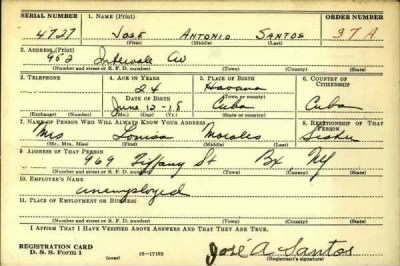 SERIAL NUMBER 1. NAME (Print) ORDER NUMBER
4727 JOSE ANTONIO SANTOS 37A
(First) (Middle) (Last)
2. ADDRESS (Print)
952 Intervale Av
(Number and street or R. F. D. number) (Town) (County) (State)
3. TELEPHONE 4. AGE IN YEARS 5. PLACE OF BIRTH 6. COUNTRY OF CITIZENSHIP
24 Havana
DATE OF BIRTH (Town or county)
June 12-18 Cuba Cuba
(Exchange) (Number) (Mo.) (Day) (Yr.) (State or country)
7. NAME OF PERSON WHO WILL ALWAYS KNOW YOUR ADDRESS 8. RELATIONSHIP OF THAT PERSON
Mrs Louisa Morales Sister
(Mr., Mrs., Miss) (First) (Middle) (Last)
9. ADDRESS OF THAT PERSON
969 Tiffany St Bx NY
(Number and street or R. F. D. number) (Town) (County) (State)
10. EMPLOYER'S NAME
unemployed
11. PLACE OF EMPLOYMENT OR BUSINESS
(Number and street or R. F. D. number) (Town) (County) (State)
I AFFIRM THAT I HAVE VERIFIED ABOVE ANSWERS AND THAT THEY ARE TRUE.
REGISTRATION CARD
D. S. S. Form 1 (over) 16-17105 José A. Santos
(Registrant's signature)